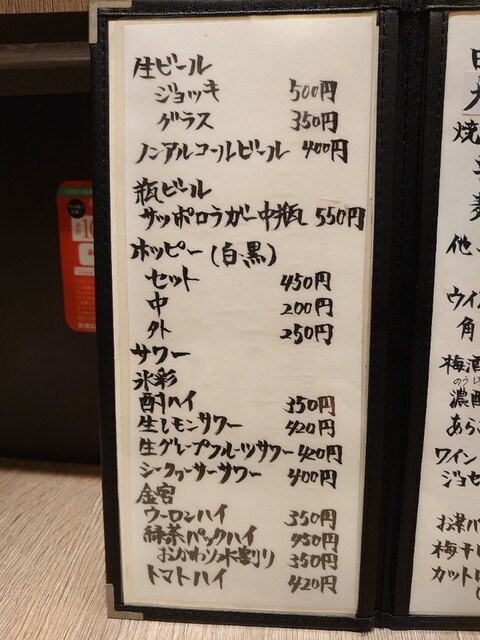 生ビール
ジョッキ 500円
グラス 350円
ノンアルコールビール 400円
瓶ビール
サッポロラガー中瓶 550円
ホッピー(白・黒)
セット 450円
中 200円
外 250円
サワー
氷彩
酎ハイ 350円
生レモンサワー 420円
生グレープフルーツサワー 420円
シークヮーサーサワー 400円
金宮
ウーロンハイ 350円
緑茶パックハイ 450円
おかわり水割り 350円
トマトハイ 420円
焼
他
ウイ
角
梅酒
濃
あら
ワイン
ジョセ
お茶
梅干
カット